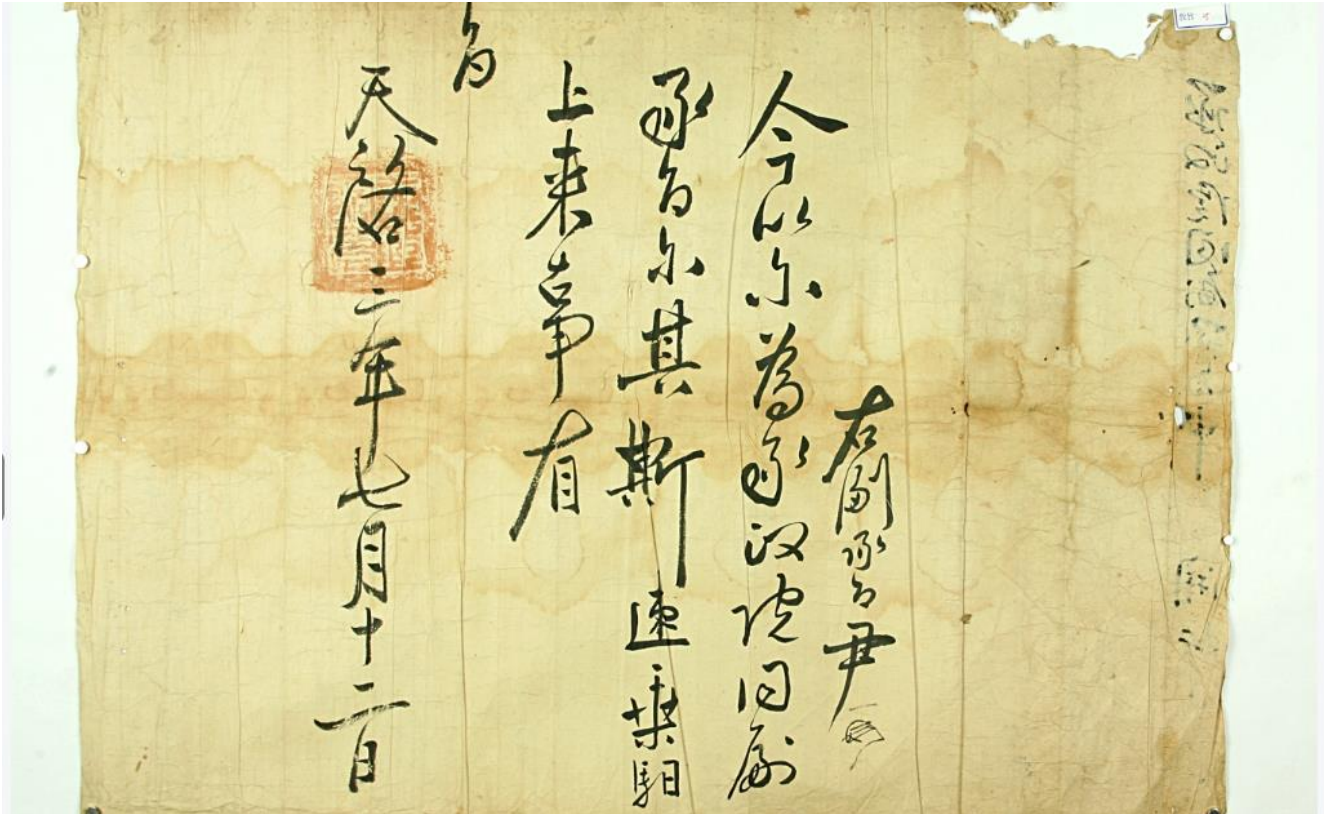 右副承旨尹
今以尔爲承政院同副
承旨尔其斯速乗馹
上来事有
旨
天啓三年七月十二日